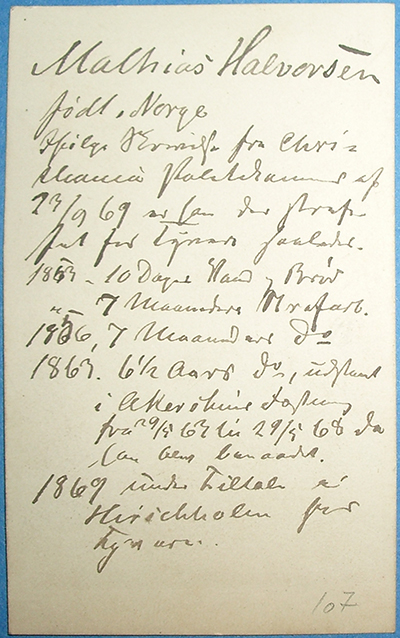 Mathias Halvorsen
født i Norge
Ifølge Skrivelse fra Chri=
stiania Politikammer af
23/9 69 er han der straf=
fet for Tyveri saaledes.
1853 - 10 Dages Vand & Brød
" - 7 Maaneders Strafarb.
1856, 7 Maaneders do
1863. 6 1/2 Aars do, udstaaet
i Akershus Fæstning
fra 29/5 63 til 29/5 68 da
han blev benaadet.
1869 under Tiltale i
Hirschholm for
Tyveri.
107